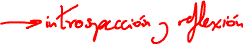 →introspección y reflexión